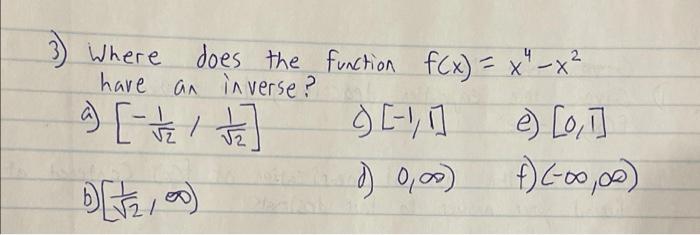 3) Where does the function f(x) = x⁴-x²
have an inverse?
a) [-1/√2, 1/√2] c) [-1,1] e) [0,1]
b) [1/√2, ∞) d) 0,∞) f) (-∞,∞)